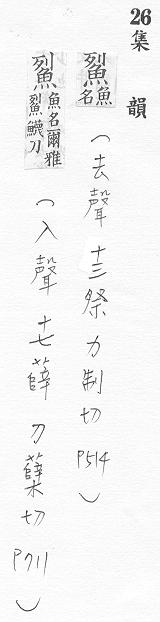 26集韻
鮤魚名（去聲 十三祭 力制切 P514）
鮤魚名爾雅鮤鱴刀（入聲 十七薛 力蘖切 P711）